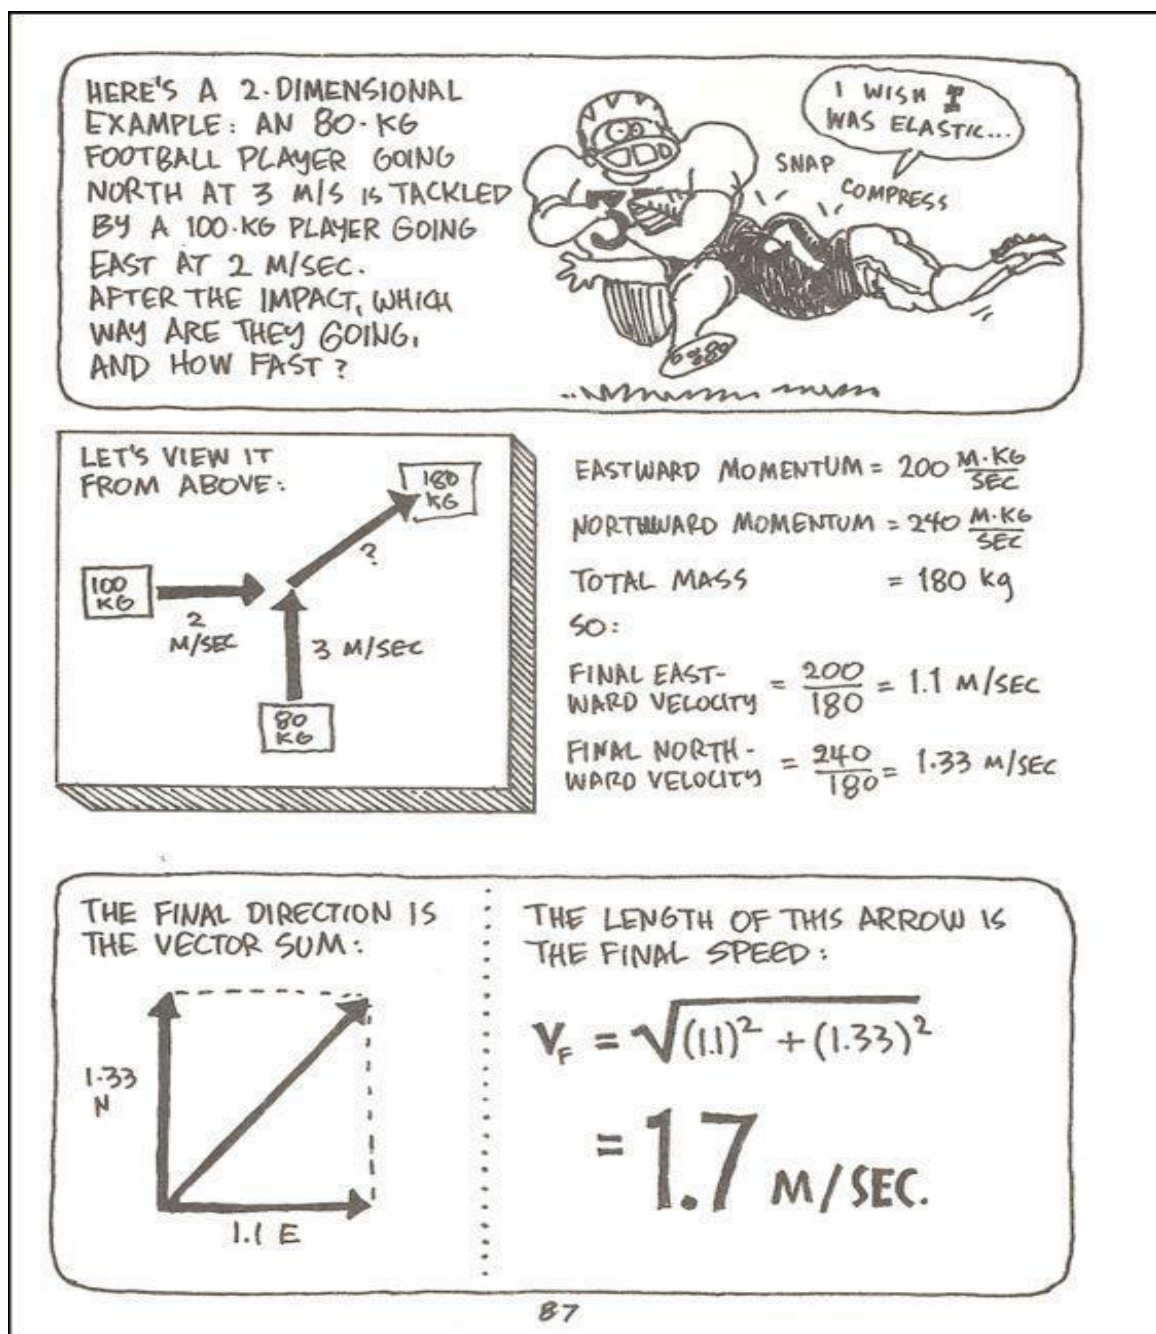 HERE'S A 2-DIMENSIONAL
EXAMPLE: AN 80-KG
FOOTBALL PLAYER GOING
NORTH AT 3 M/S IS TACKLED
BY A 100-KG PLAYER GOING
EAST AT 2 M/SEC.
AFTER THE IMPACT, WHICH
WAY ARE THEY GOING,
AND HOW FAST?
I WISH I
WAS ELASTIC...
SNAP
COMPRESS
LET'S VIEW IT
FROM ABOVE:
180
KG
?
100
KG
2
M/SEC
3 M/SEC
80
KG
EASTWARD MOMENTUM = 200 M·KG/SEC
NORTHWARD MOMENTUM = 240 M·KG/SEC
TOTAL MASS = 180 kg
SO:
FINAL EAST-
WARD VELOCITY = 200/180 = 1.1 M/SEC
FINAL NORTH-
WARD VELOCITY = 240/180 = 1.33 M/SEC
THE FINAL DIRECTION IS
THE VECTOR SUM:
1.33
N
1.1 E
THE LENGTH OF THIS ARROW IS
THE FINAL SPEED:
VF = √(1.1)² + (1.33)²
= 1.7 M/SEC.
87